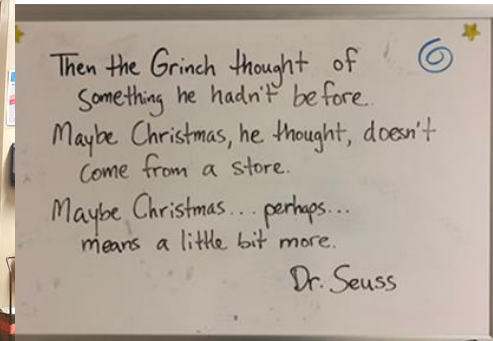 Then the Grinch thought of
something he hadn't before.
Maybe Christmas, he thought, doesn't
come from a store.
Maybe Christmas... perhaps...
means a little bit more.
Dr. Seuss